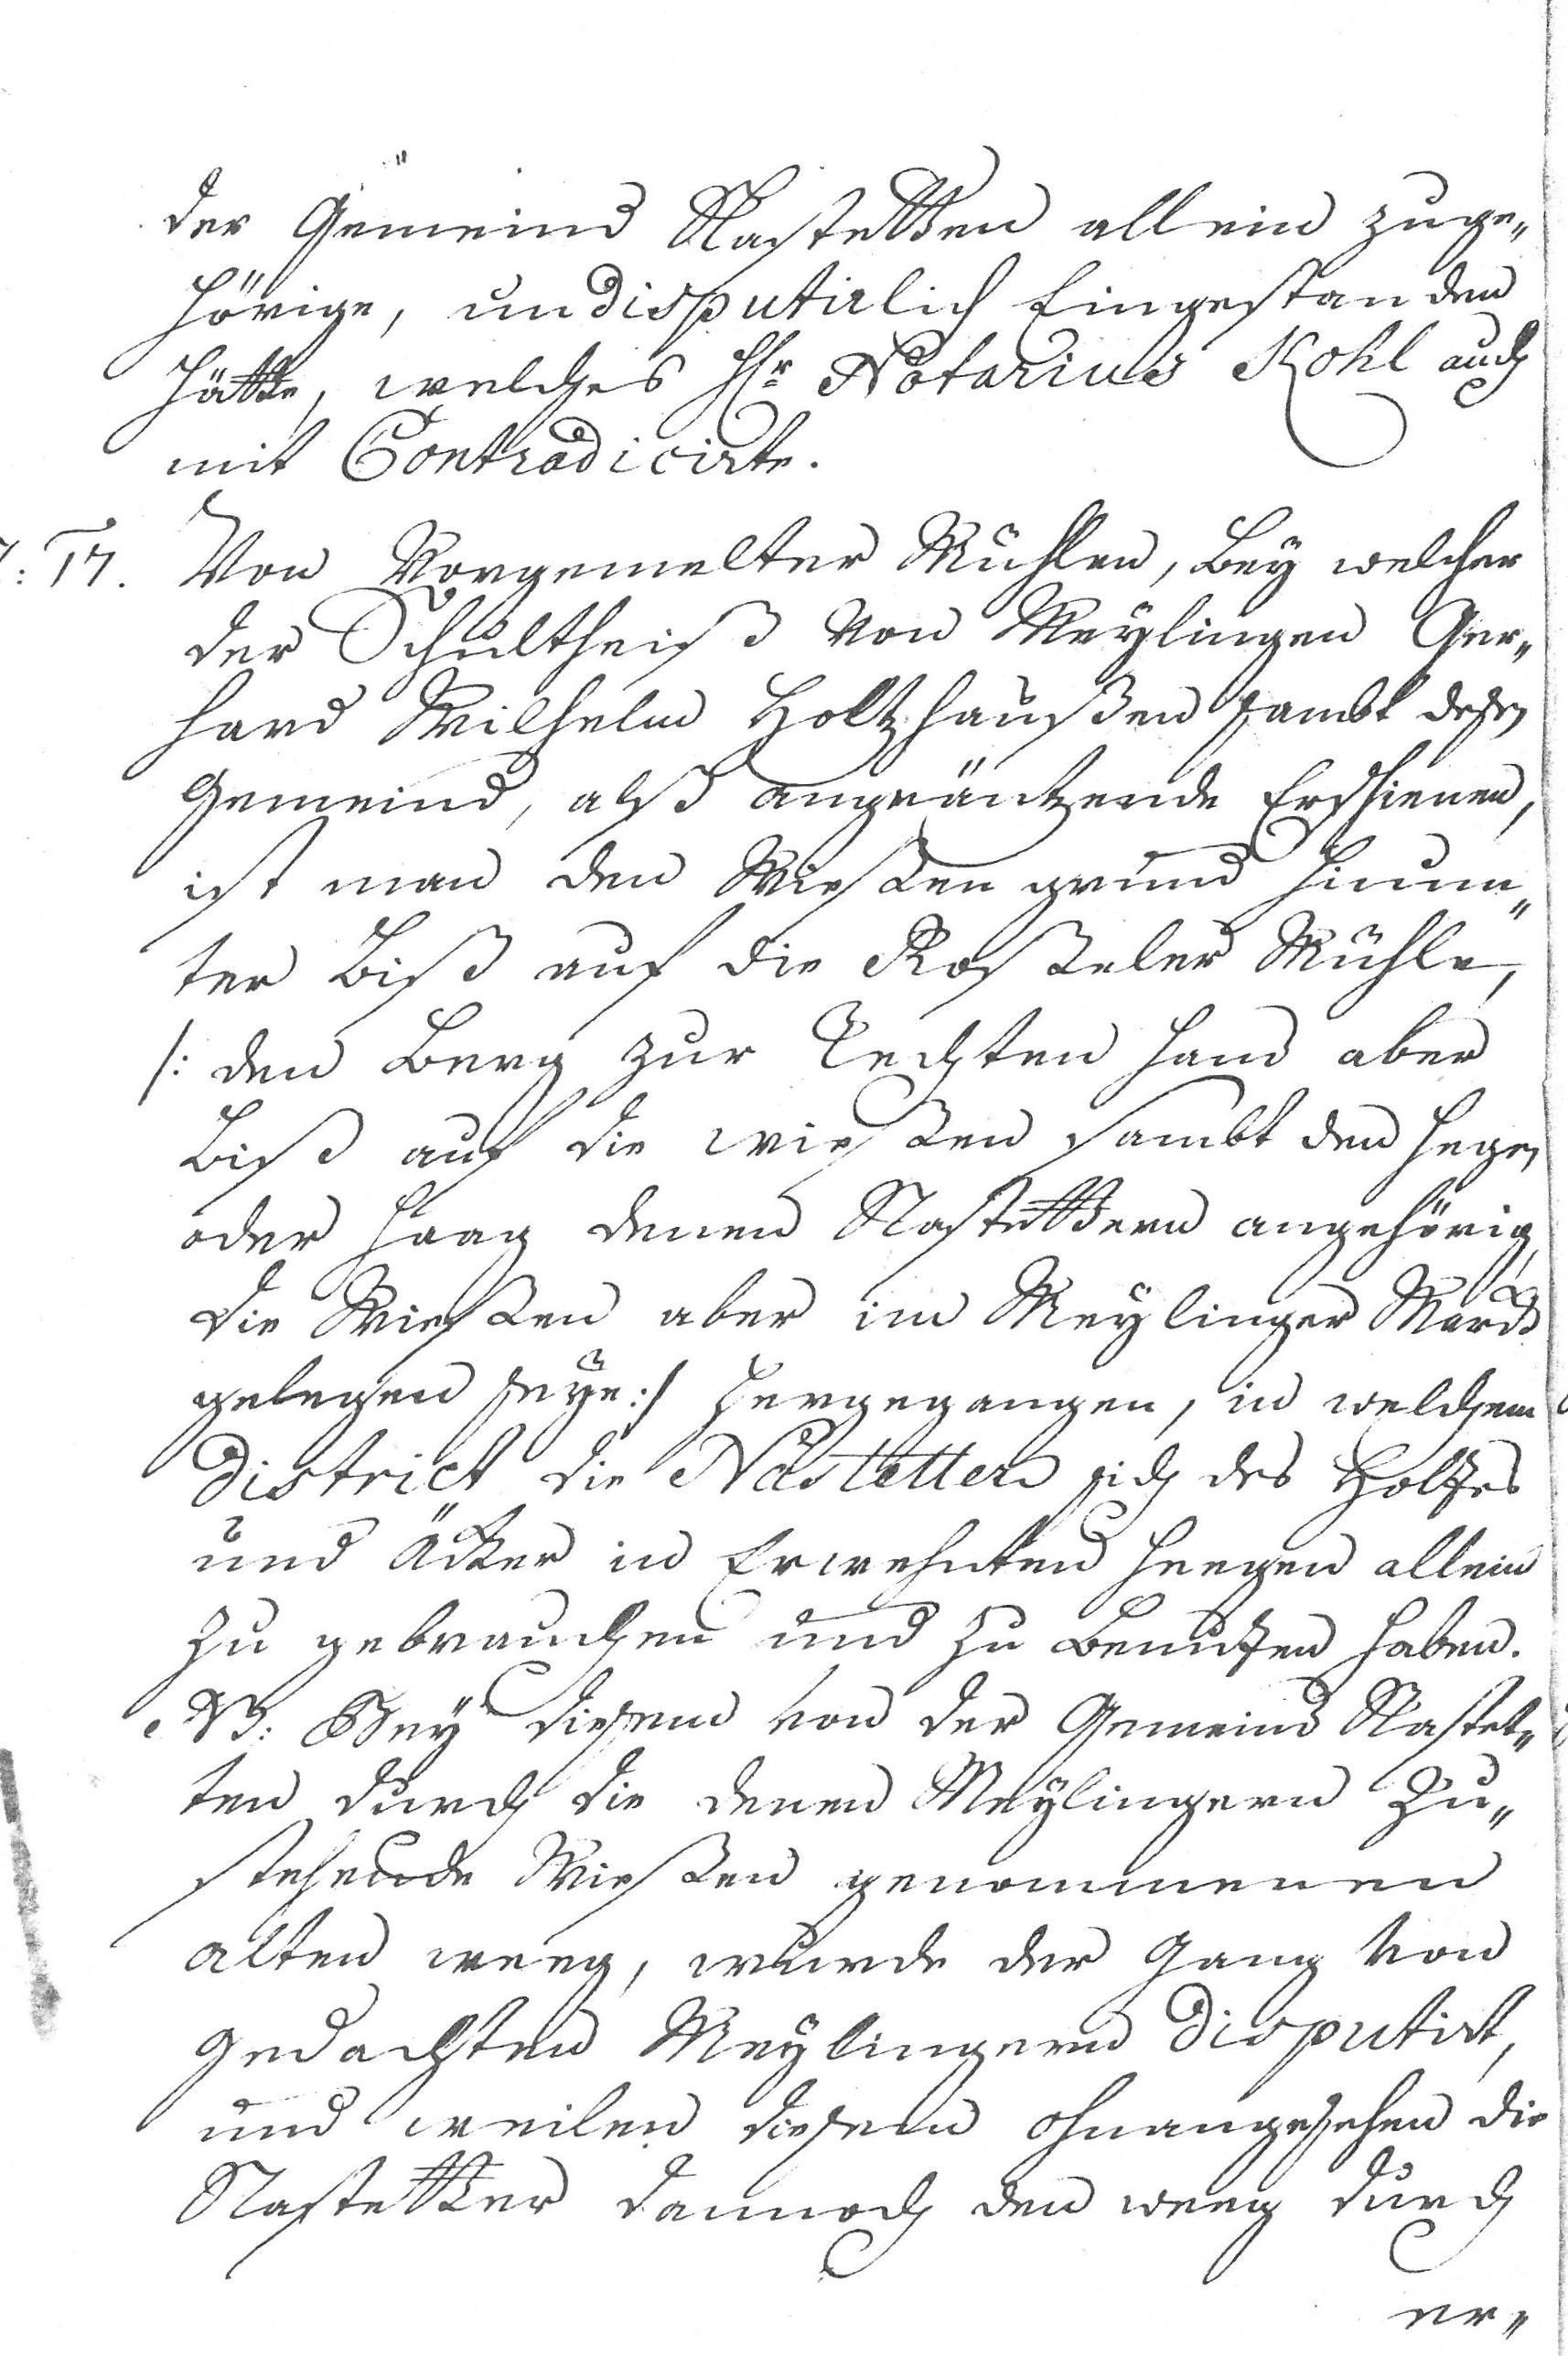 der Gemeind Nastetten allein zuge„
hörige, undisputirlich Eingestanden
hätte, welches Hr Notarius Kohl auch
mit Contradicirte.
: 17. Von Vorgemelter Mühlen, Bey welcher
der Schultheiß von Meylingen Ger„
hard Wilhelm Holtzhaußen sambt deßen
Gemeind, alß angräntzende Erschienen,
ist man den Wießen grund hinun„
ter Biß auf die Roßeler Mühle,
/: den Berg zur Rechten Hand aber
Biß auf die wießen sambt den Hegen
oder Haag denen Nastettern angehörig,
die Wießen aber in Meylinger Marck
gelegen seye:/ hergegangen, in welchem
District die Nastetter sich des Holtzes
und Äcker in Erwehnten Heegen allein
zu gebrauchen und zu Benutzen haben.
NB: Bey diesem von der Gemeind Nastet„
ten durch die denen Meylingern Zu„
stehende Wießen genommenen
alten weeg, wurde der Gang von
gedachten Meylingern disputirt,
und weilen diesem ohnangesehen die
Nastetter dannoch den weeg durch
er„